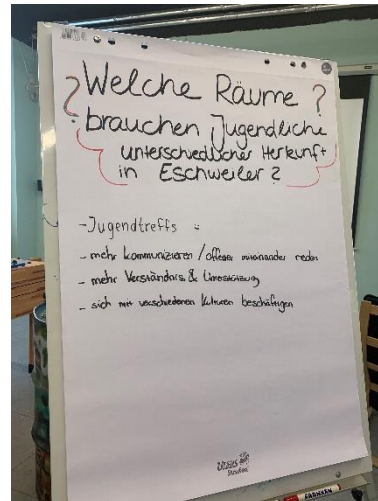 ? Welche Räume ?
brauchen Jugendliche
unterschiedlicher Herkunft
in Eschweiler?
-Jugendtreffs =
- mehr kommunizieren / offener miteinander reden
- mehr Verständnis & Unterstützung
- sich mit verschiedenen Kulturen beschäftigen